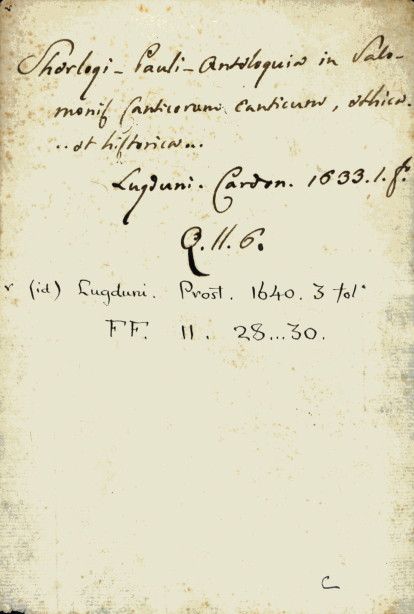 Sherlogi - Pauli - Anteloquia in Salo-
monis Canticorum Canticum, ethica.
.. et historica..
Lugduni. Cardon. 1633. 1. f°.
Q. 11. 6.
v (id) Lugduni. Prost. 1640. 3 fol°
FF. 11. 28...30.
C